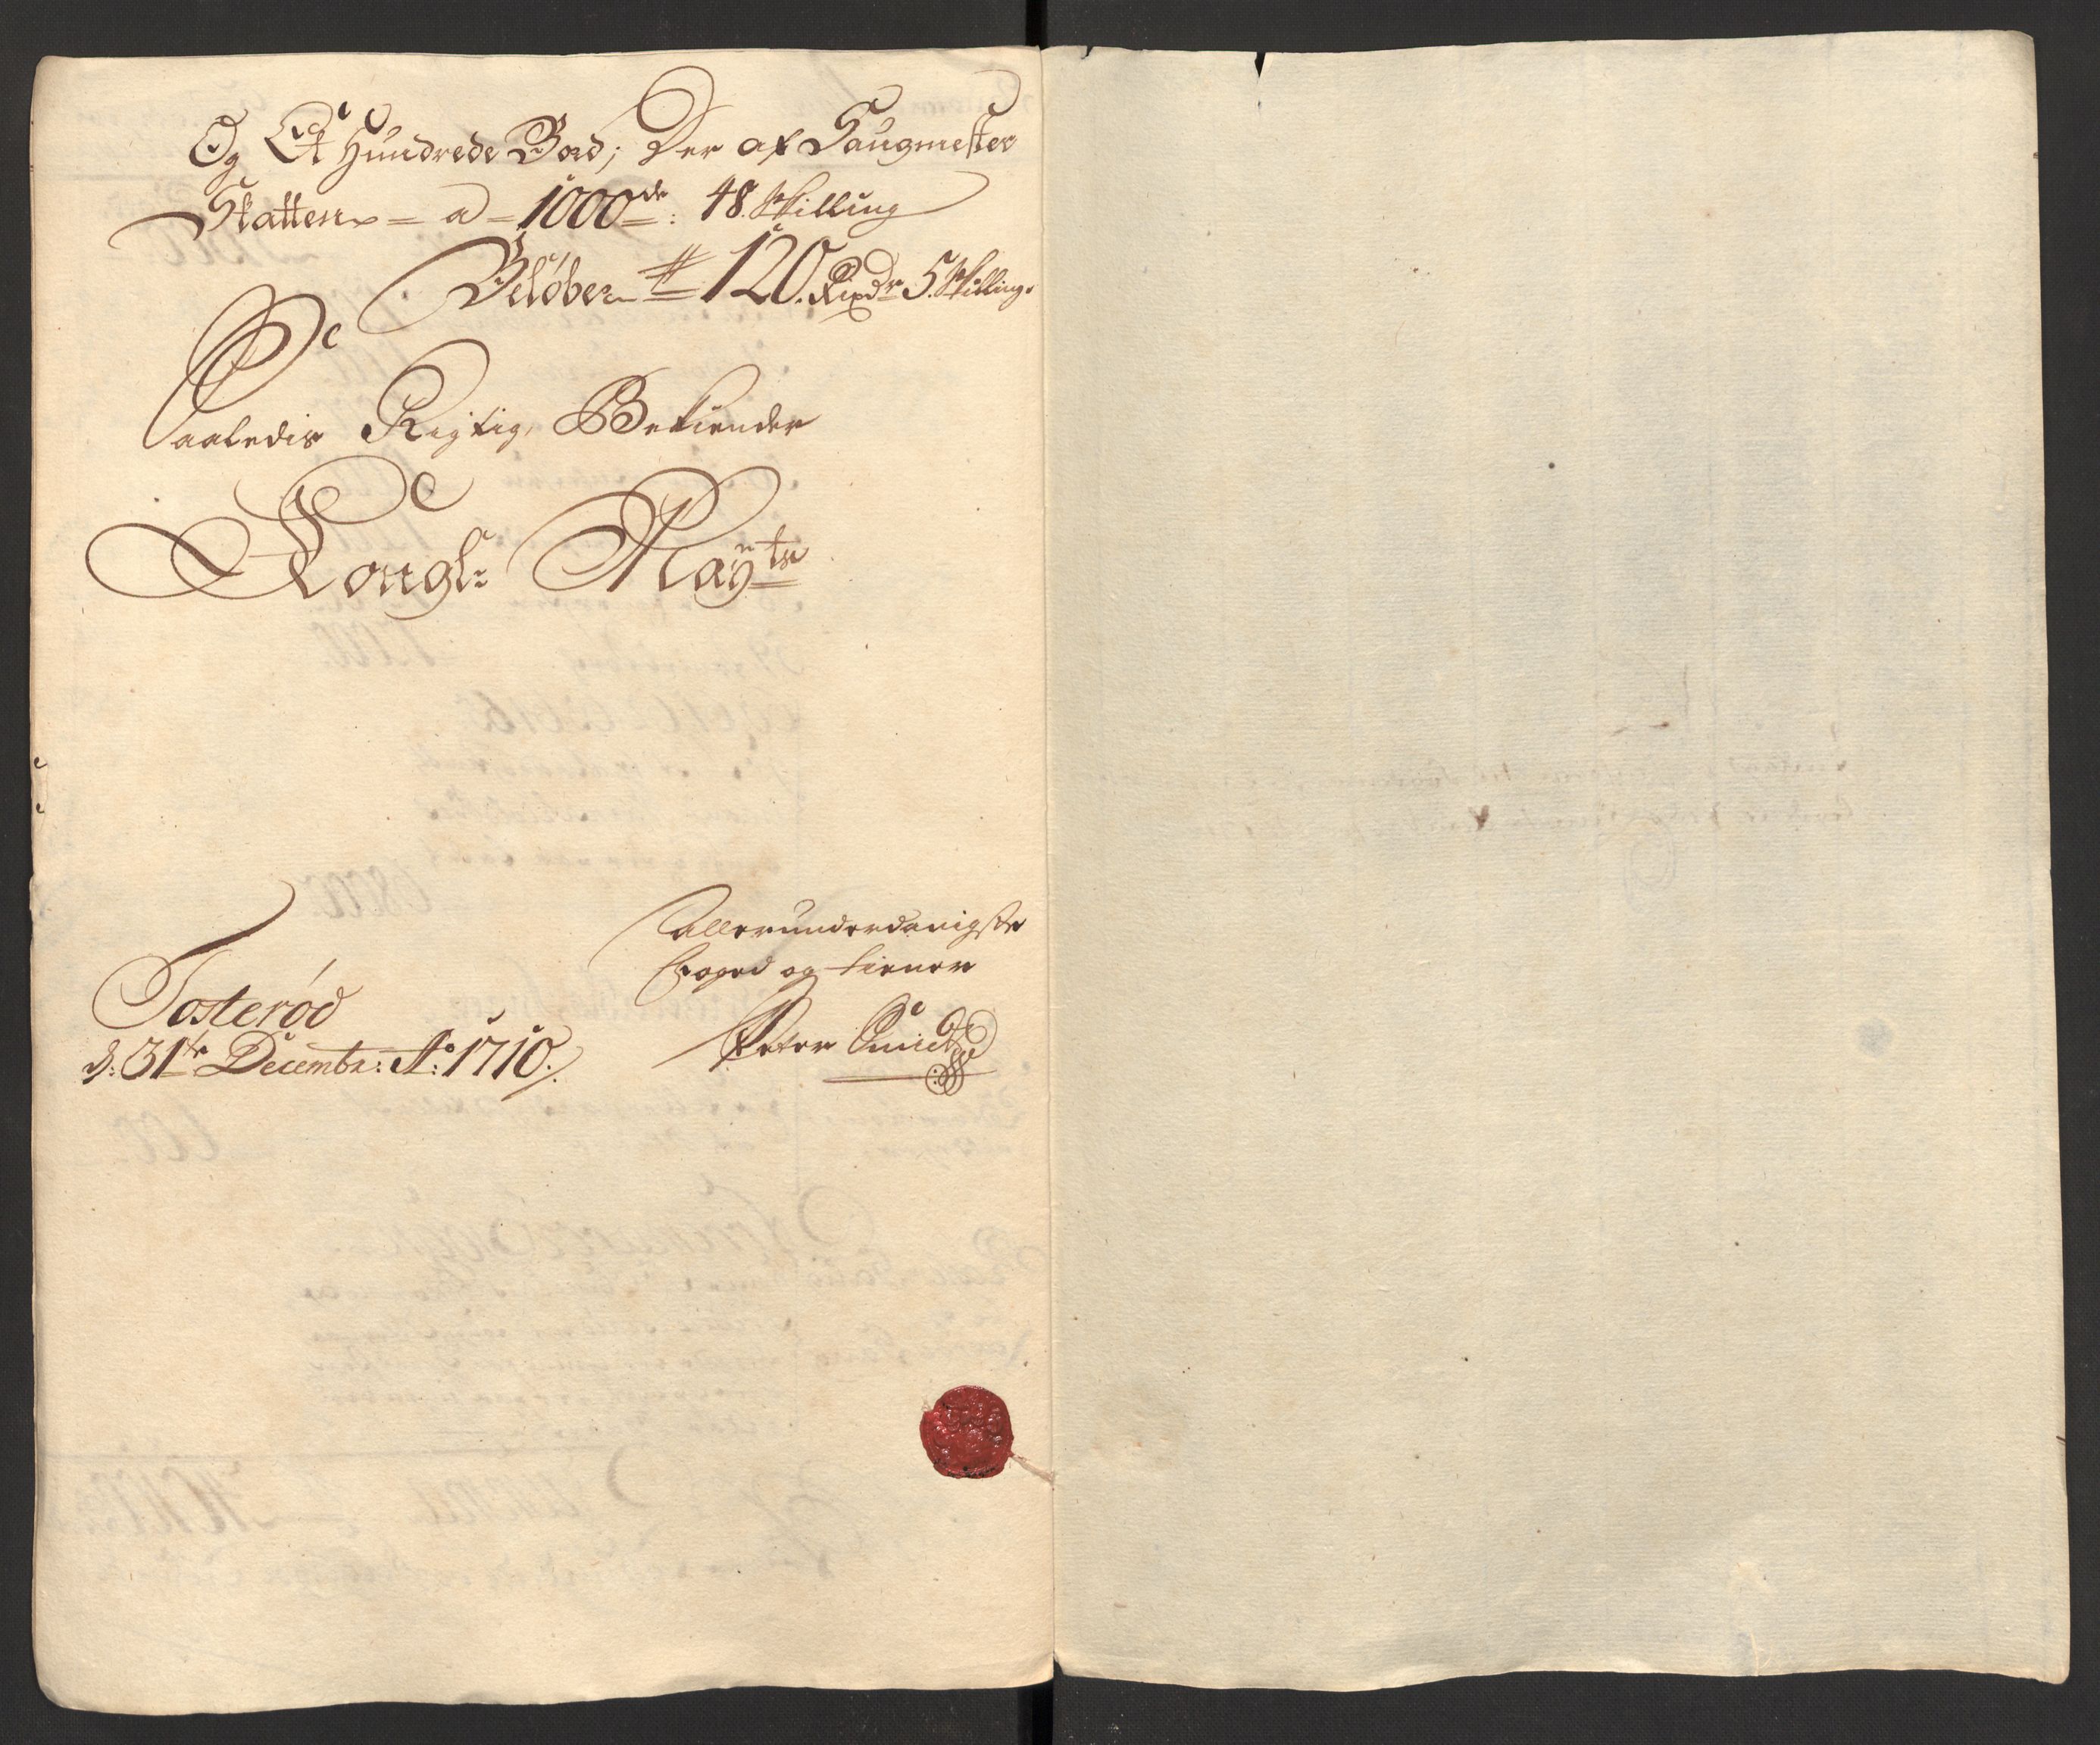 Og Et Hundrede Bord; Der af Saugmester
Skatten = a = 1000de: 48. Skilling
Beløber = 120. Rixdr 5. Skilling.
Saaledis Rigtig, Bekiender
Kongl: Mayts
Allerunderdanigste
Foged og tiener
Peter Smidt
Tosterød
d: 31te Decembr: Ao: 1710.